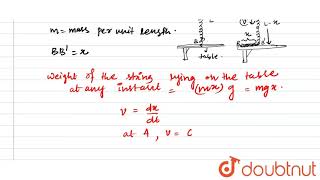 m = mass per unit length.
BB' = x
L-x
x
table.
Weight of the string lying on the table
at any instant = (mx) g = mgx.
v = dx/dt
at A, v = C
doubtnut